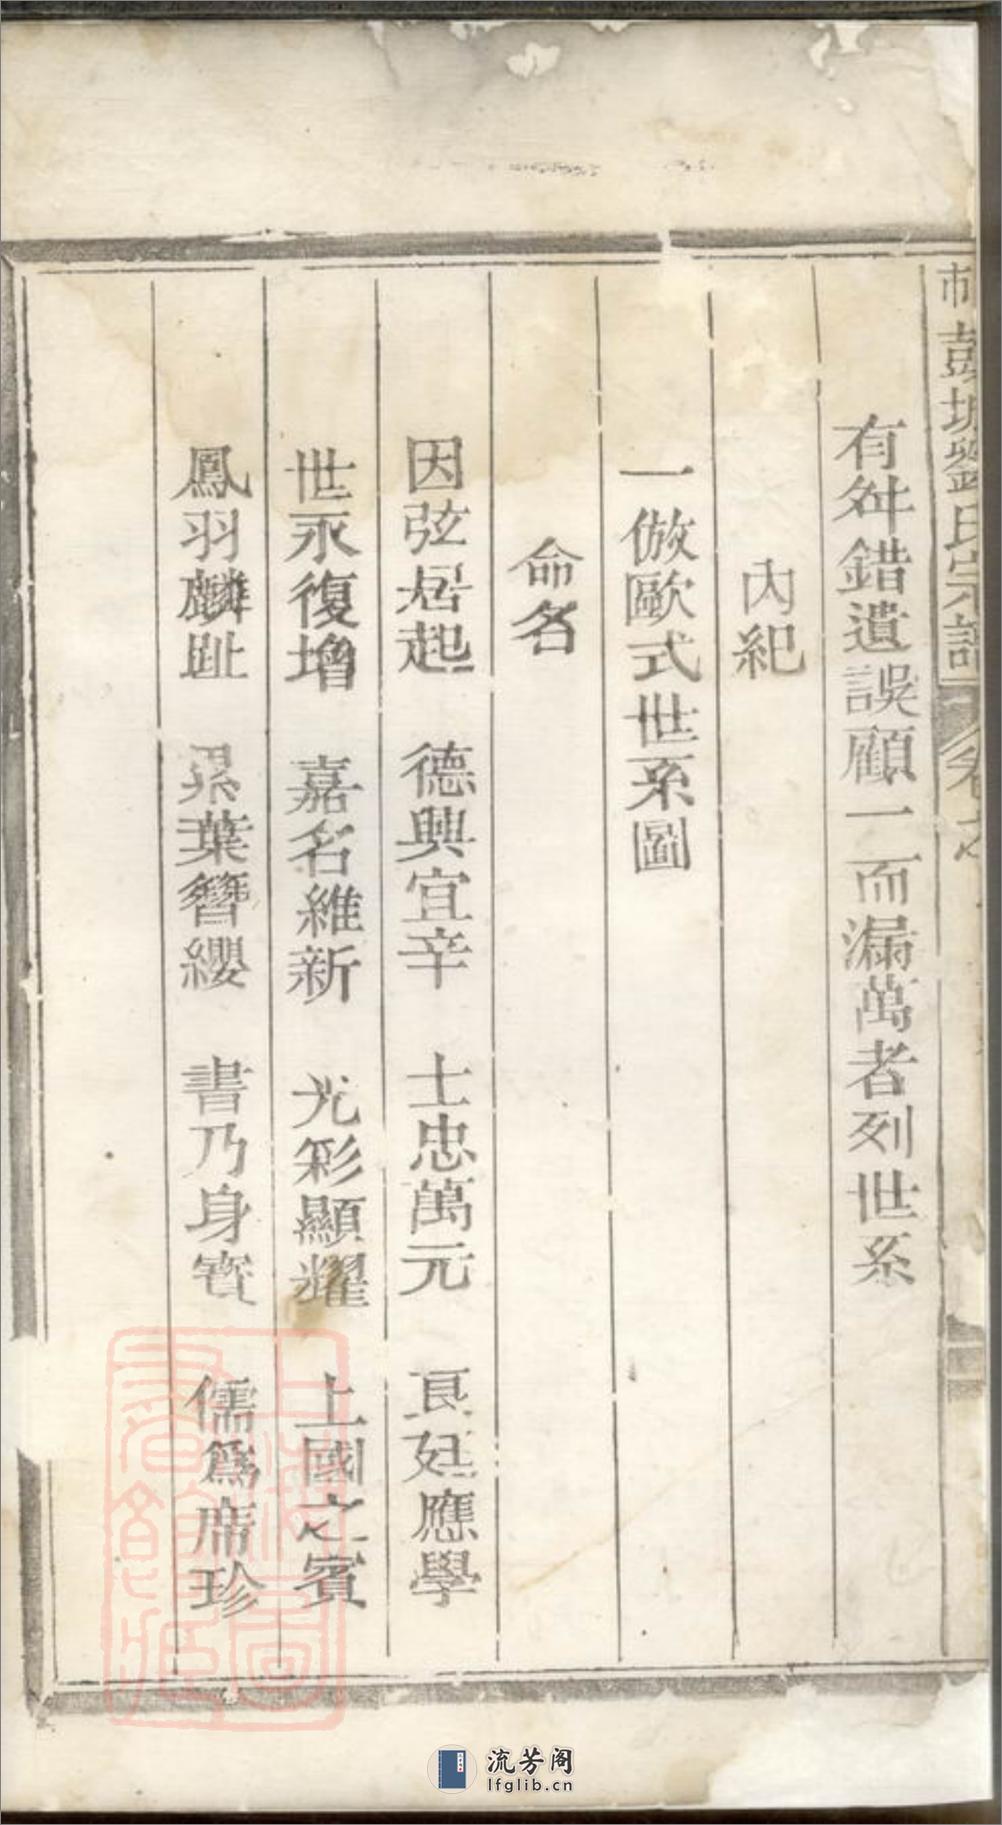 彭城劉氏宗譜 卷之
有舛錯遺誤顧一而漏萬者列世系
內紀
一倣歐式世系圖
命名
因弦居起 德興宜辛 士忠萬元 良廷應學
世永復增 嘉名維新 光彩顯耀 上國之賓
鳳羽麟趾 累葉簪纓 書乃身寶 儒爲席珍
上海圖書館藏
流芳阁
lfglib.cn